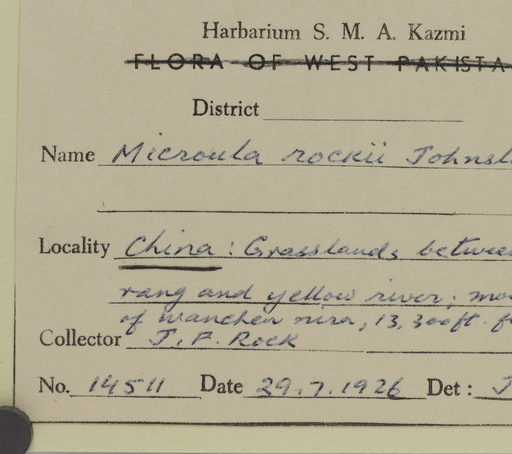 Harbarium S. M. A. Kazmi
FLORA OF WEST PAKISTA
District
Name Microula rockii Johnst
Locality China: Grasslands between
rang and yellow river; mo
of wanchen nira, 13,300ft. f
Collector J. F. Rock
No. 14511 Date 29.7.1926 Det: J